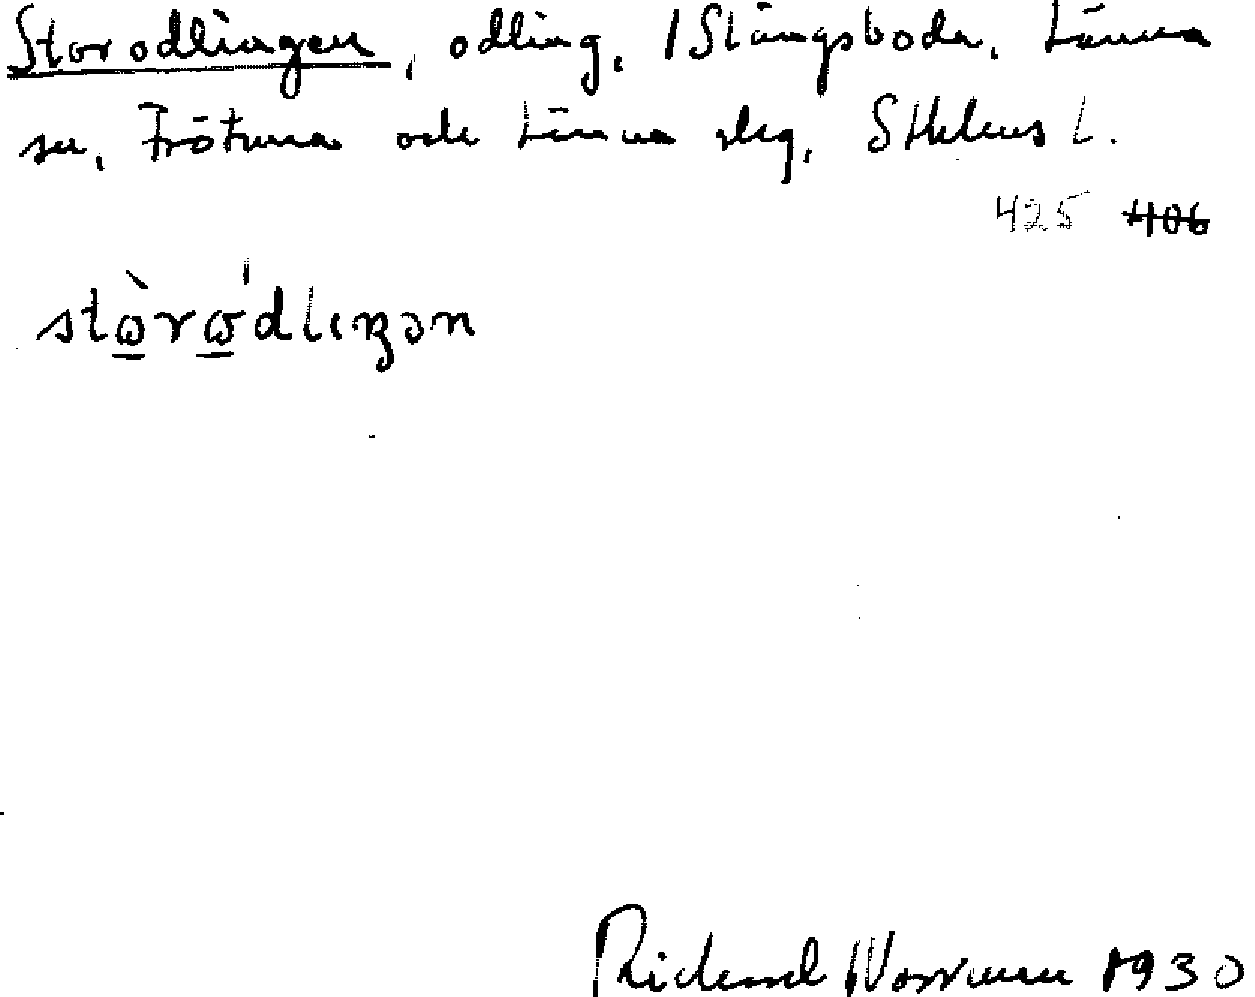 Storodlingen, odling, 1 Stångsboda, Länna
sn, Frötuna och Länna slg, Sthlms l.
425 406
stòródlıŋən
Richard Norrman 1930